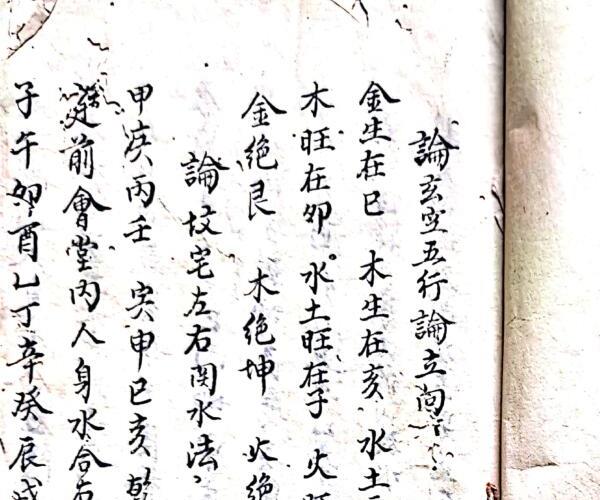 論玄空五行論立向
金生在巳 木生在亥 水土
木旺在卯 水土旺在子 火旺
金絶艮 木絶坤 火絶
論坟宅左右関水法
甲庚丙壬 寅申巳亥 乾
前會堂内人身水合
子午卯酉乙丁辛癸辰戌